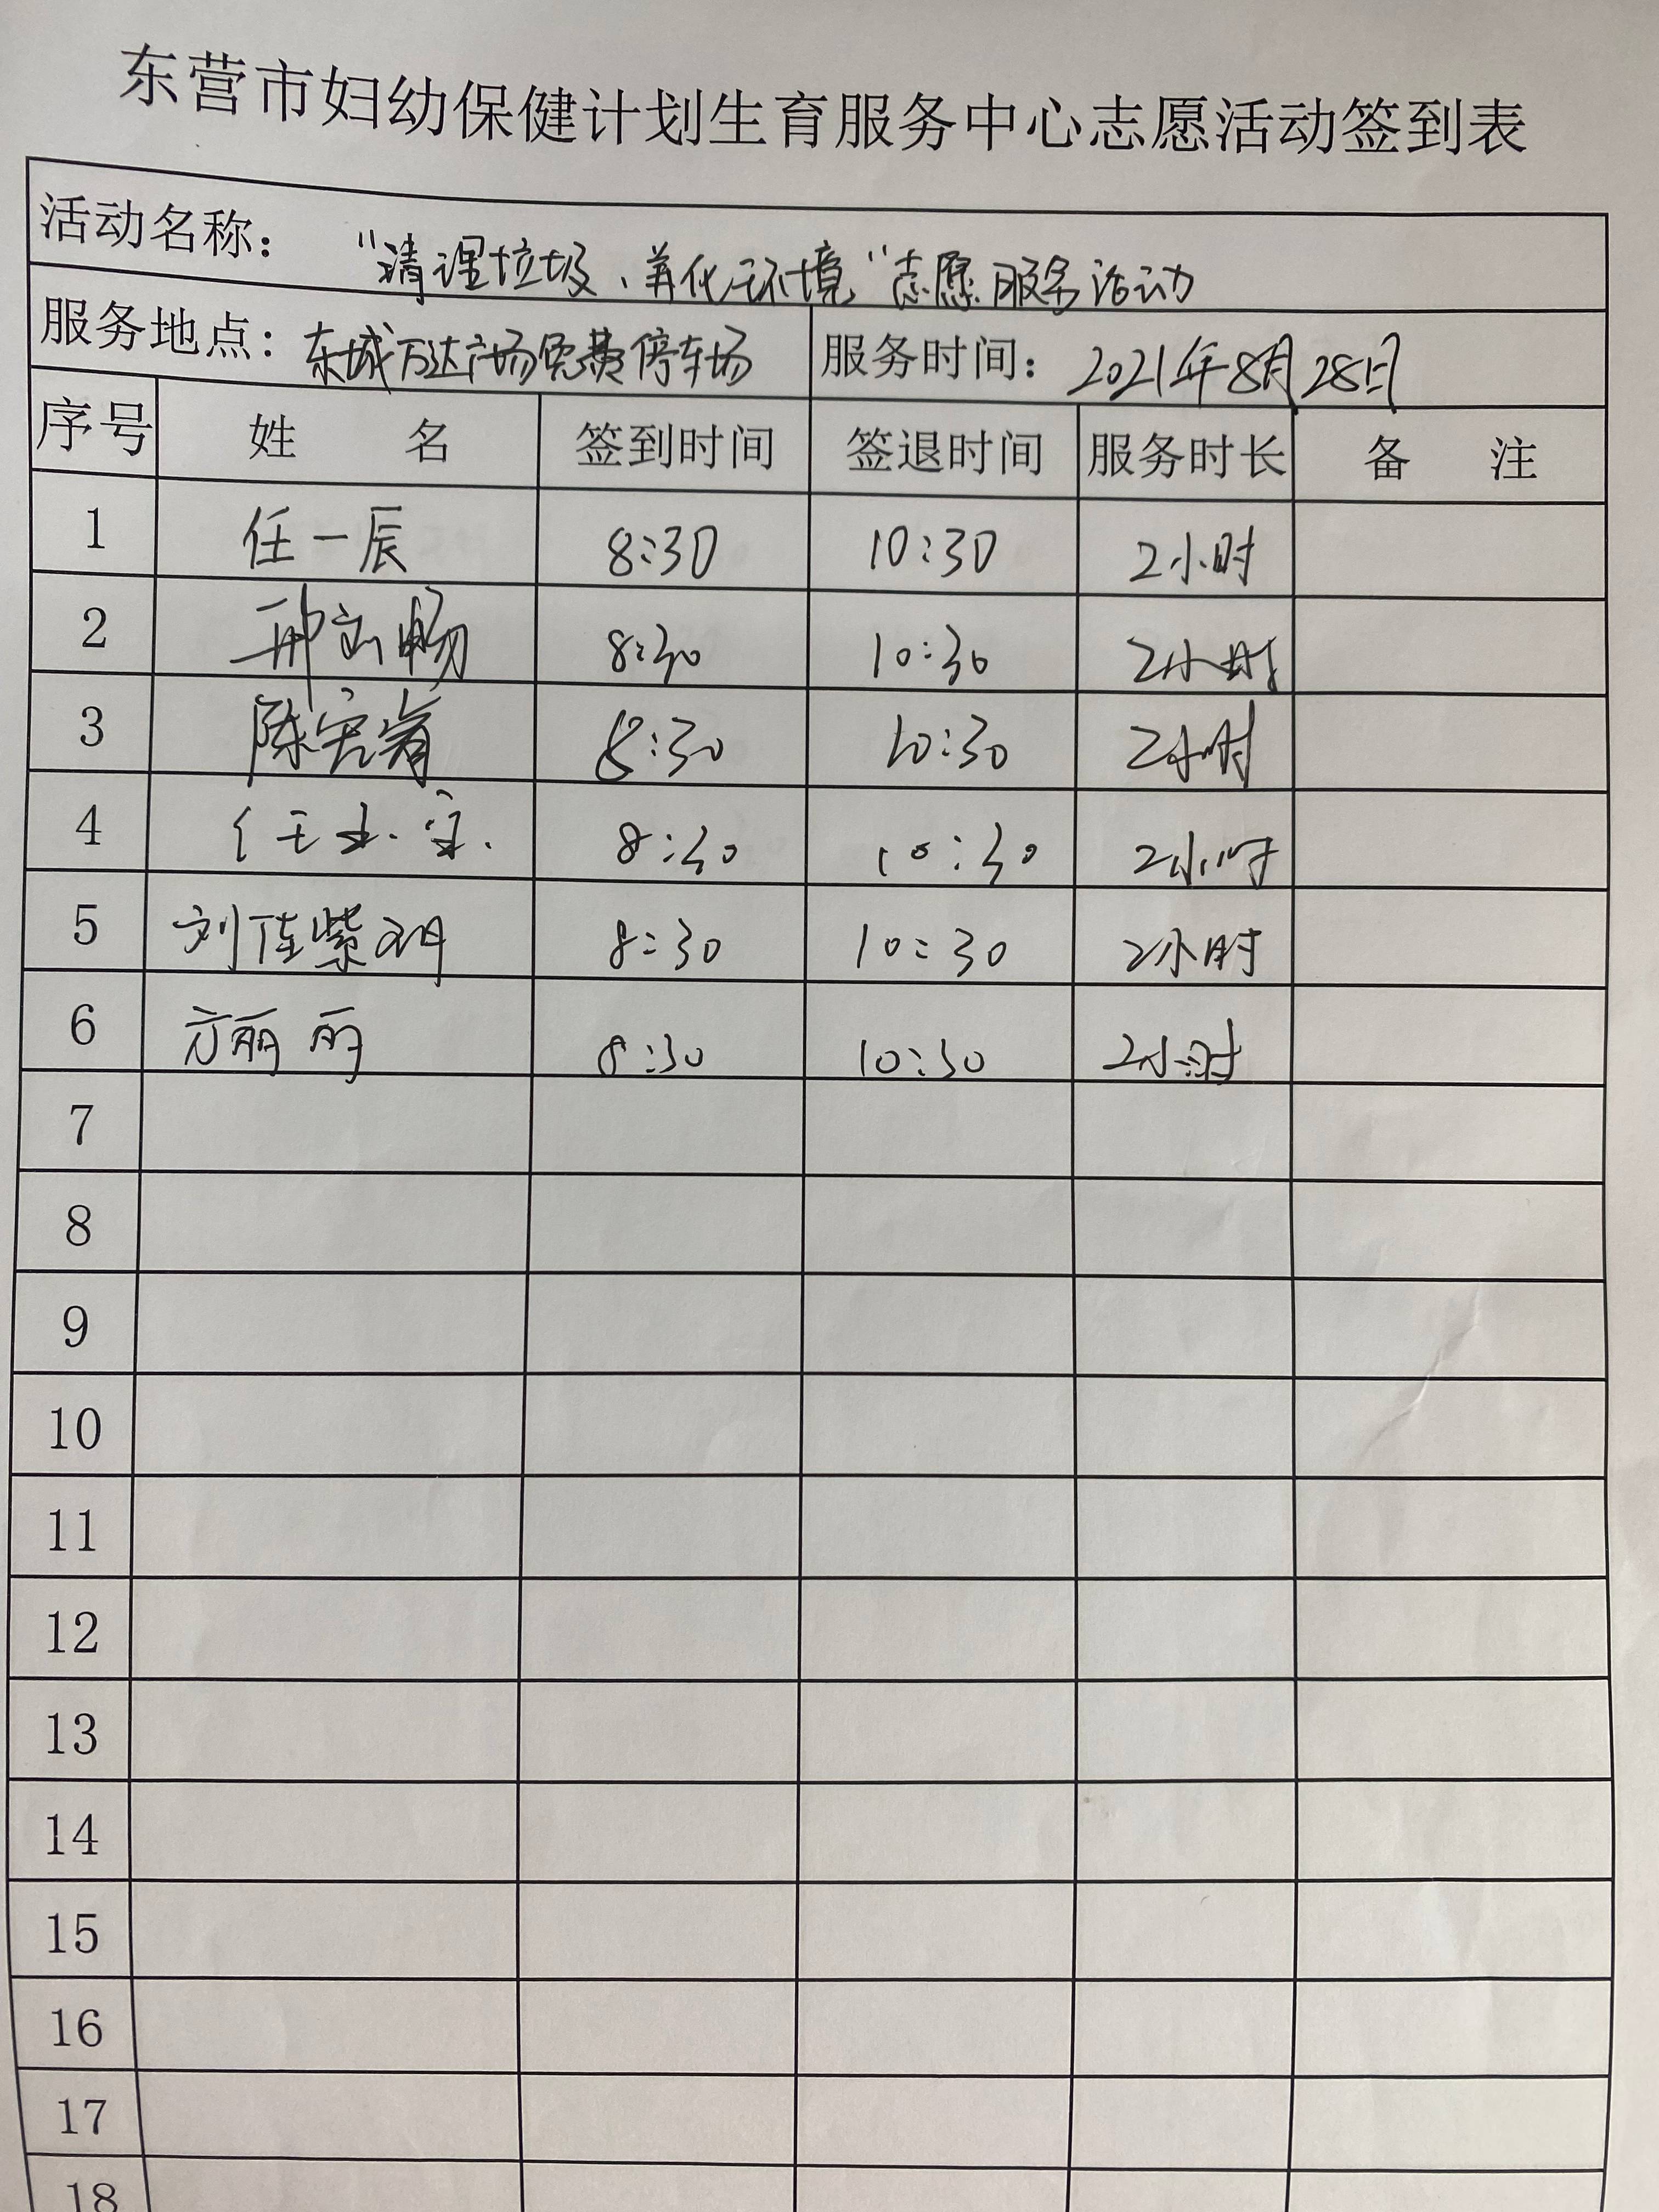 东营市妇幼保健计划生育服务中心志愿活动签到表
活动名称： “清理垃圾、美化环境”志愿服务活动
服务地点：东城万达广场免费停车场 服务时间：2021年8月28日
序号 姓 名 签到时间 签退时间 服务时长 备 注
1 任一辰 8:30 10:30 2小时
2 8:30 10:30 2小时
3 陈宪省 8:30 10:30 2小时
4 8:30 10:30 2小时
5 刘佳紫玥 8:30 10:30 2小时
6 方丽丽 8:30 10:30 2小时
7
8
9
10
11
12
13
14
15
16
17
18